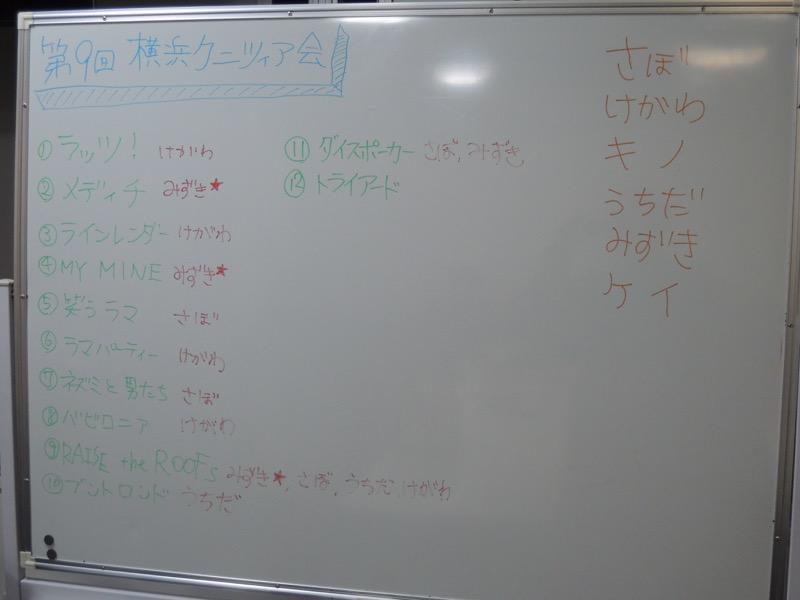 第9回 横浜クニツィア会
① ラッツ! けがわ
② メディチ みずき★
③ ラインレンダー けがわ
④ MY MINE みずき★
⑤ 笑うラマ さぼ
⑥ ラマパーティー けがわ
⑦ ネズミと男たち さぼ
⑧ バビロニア けがわ
⑨ RAISE the ROOFs みずき★, さぼ, うちだ, けがわ
⑩ ブントロンド うちだ
⑪ ダイスポーカー さぼ, みずき
⑫ トライアード
さぼ
けがわ
キノ
うちだ
みずき
ケイ